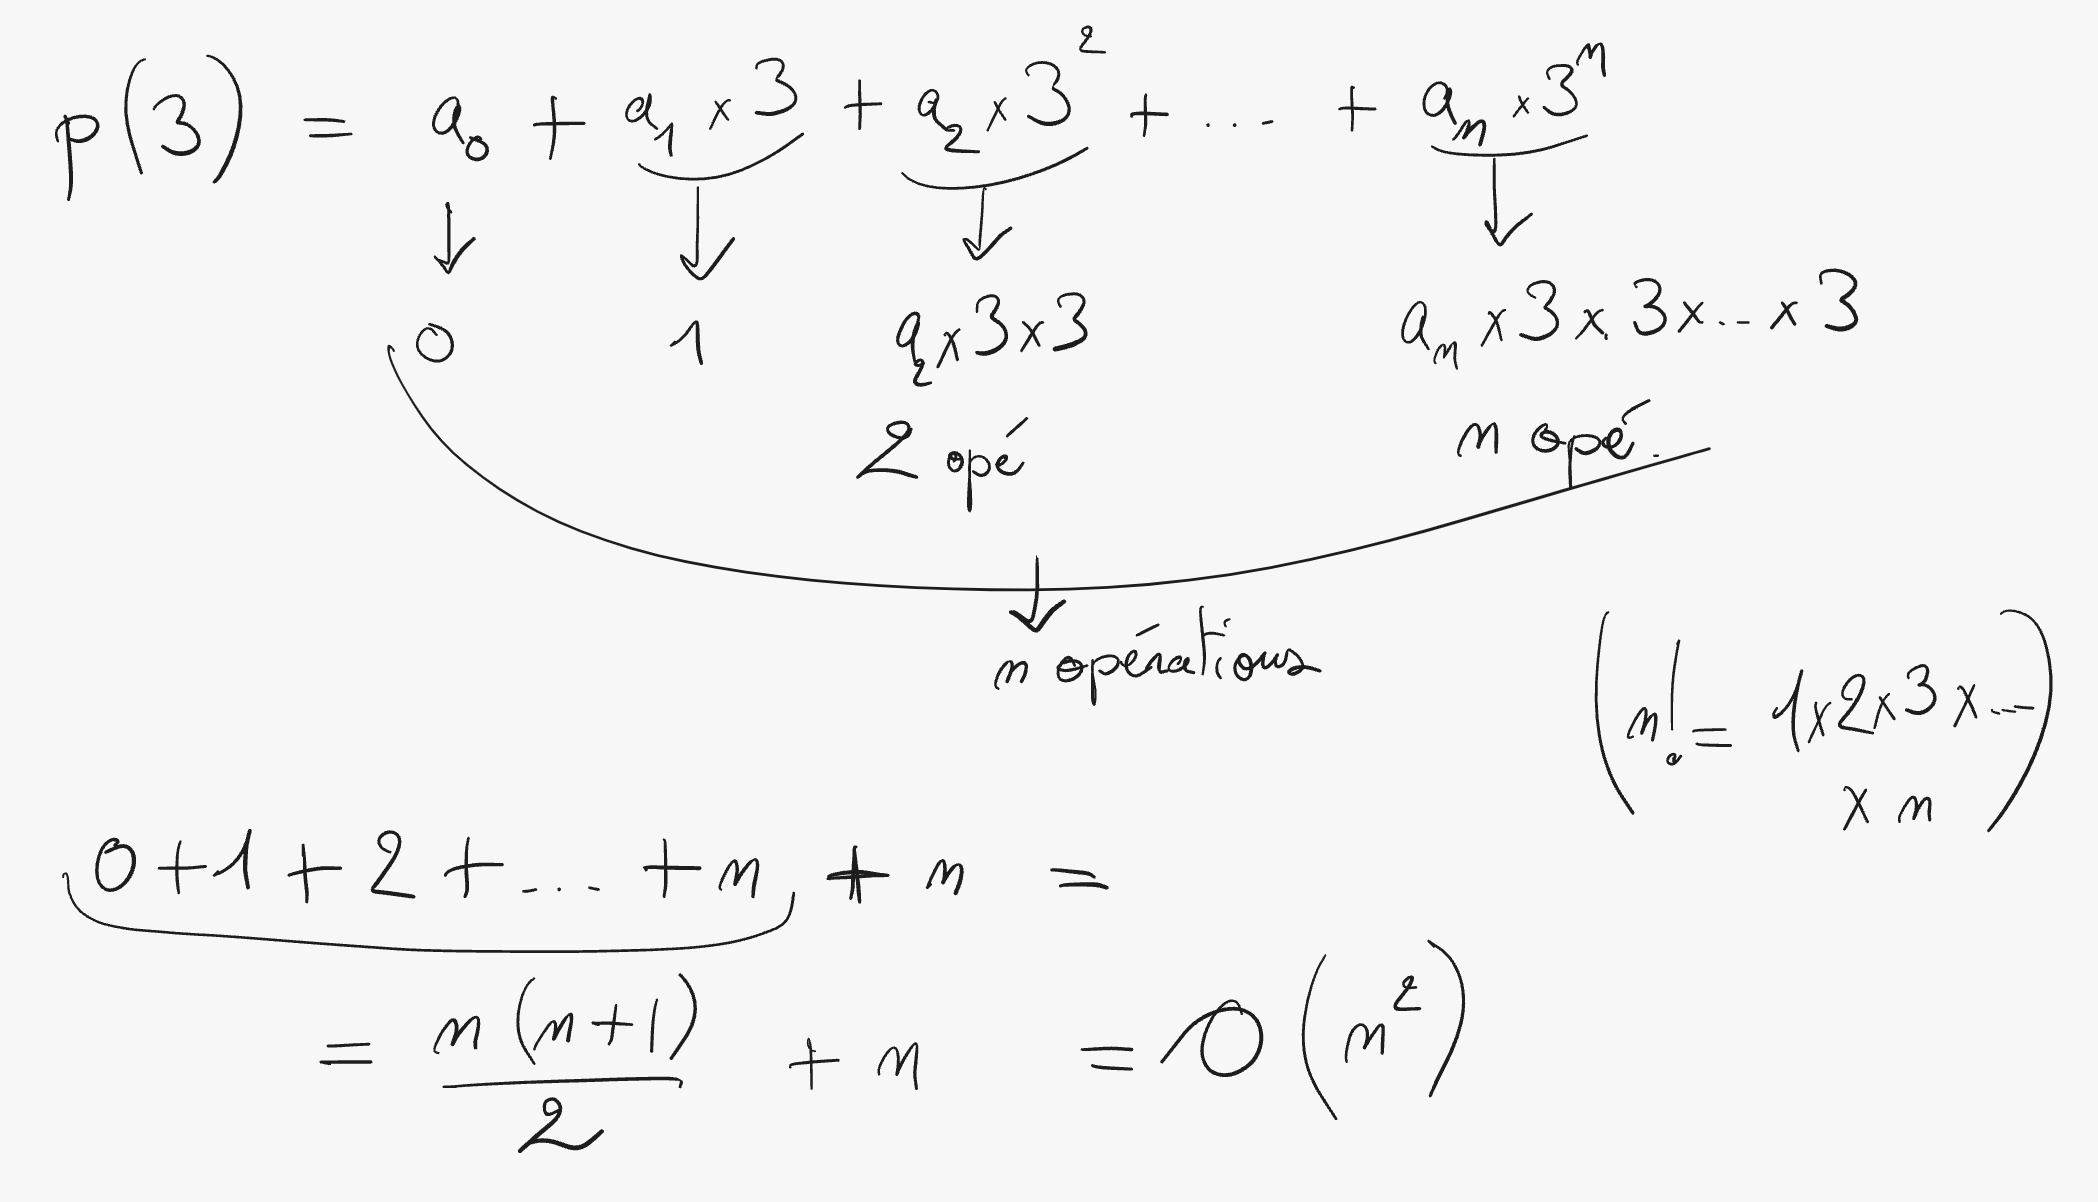 p(3) = a₀ + a₁ × 3 + a₂ × 3² + ... + aₙ × 3ⁿ
0 1 a₂ × 3 × 3 aₙ × 3 × 3 × ... × 3
2 opé n opé.
n opérations
(n! = 1 × 2 × 3 × ...
× n)
0 + 1 + 2 + ... + n + n =
= n(n+1)/2 + n = O(n²)